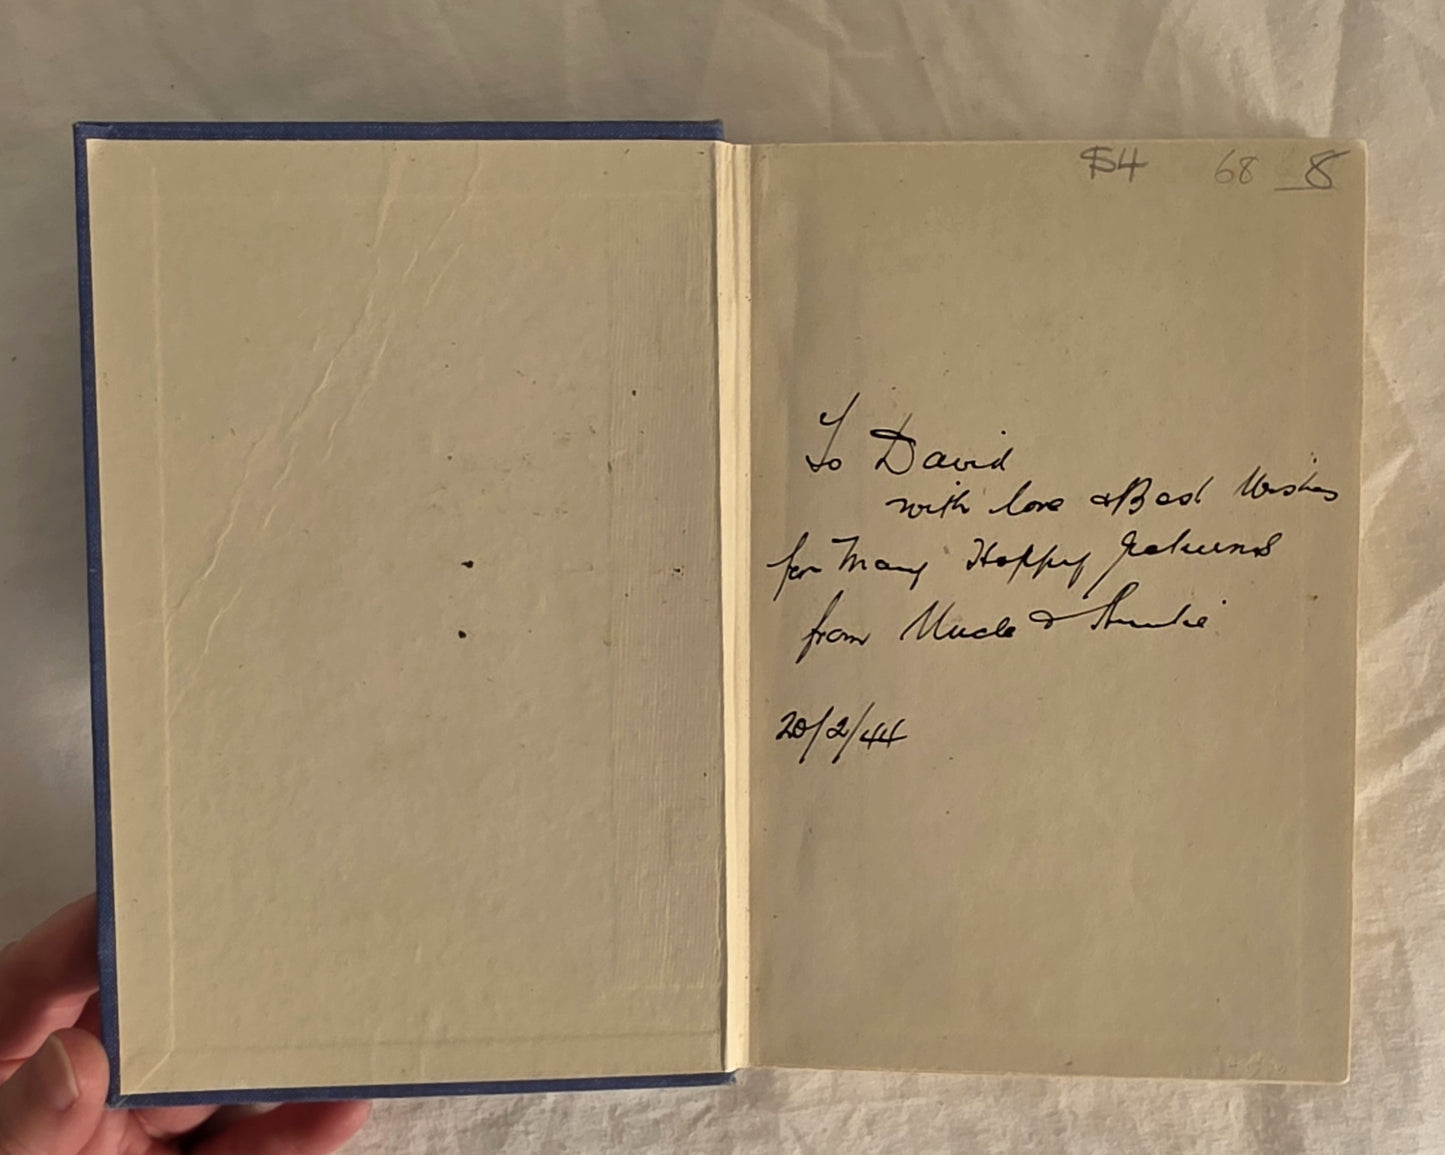 $4 68 8
To David
with love & Best Wishes
for Many Happy Returns
from Uncle & Auntie
20/2/44